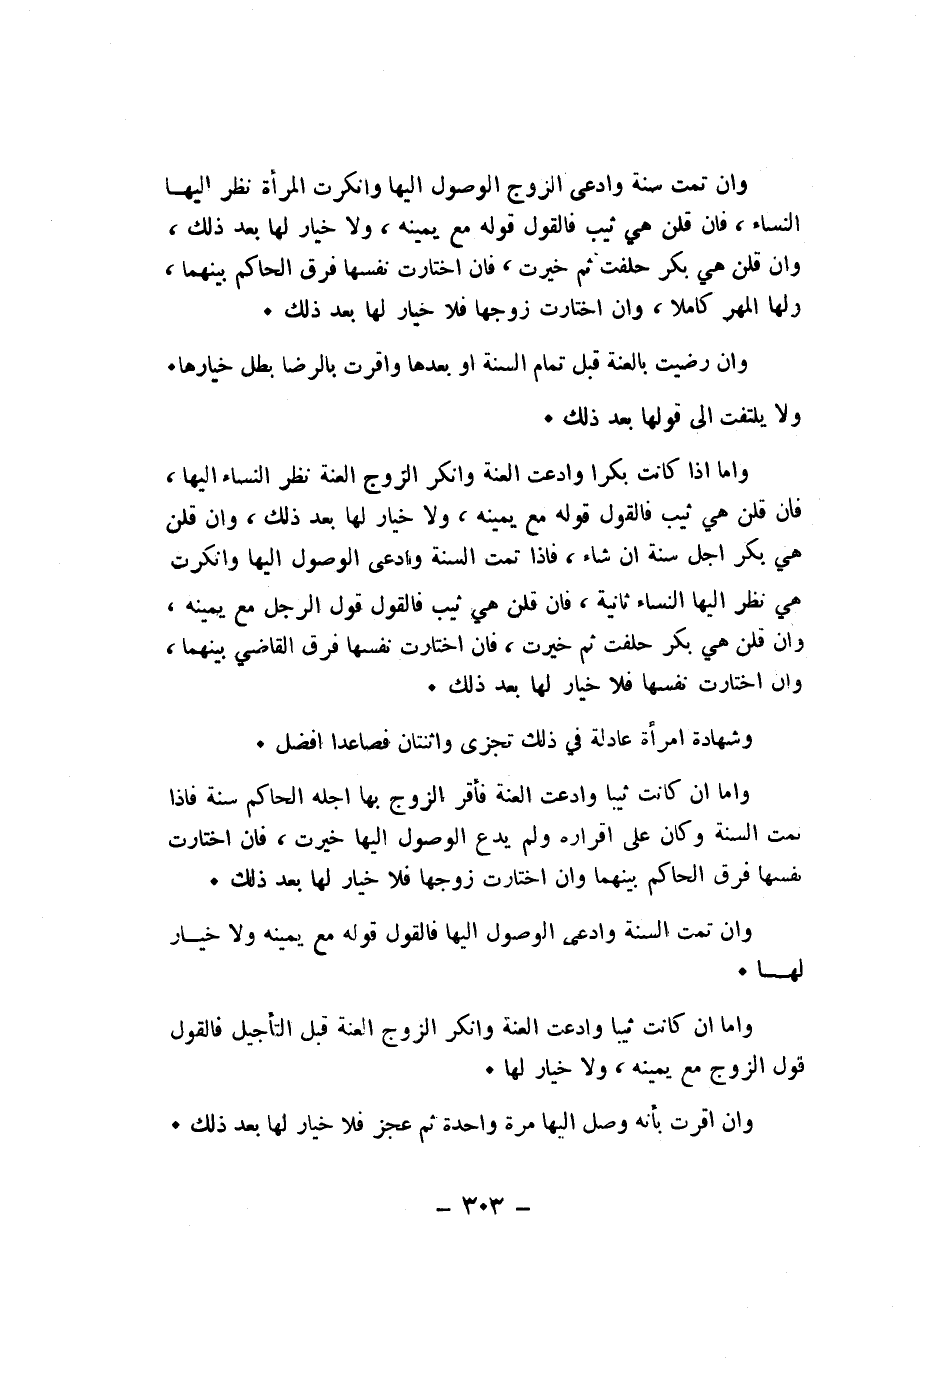 وان تمت سنة وادعى الزوج الوصول اليها وانكرت المرأة نظر اليهـا
النساء ، فان قلن هي ثيب فالقول قوله مع يمينه ، ولا خيار لها بعد ذلك ،
وان قلن هي بكر حلفت ثم خيرت ، فان اختارت نفسها فرق الحاكم بينهما ،
ولها المهر كاملا ، وان اختارت زوجها فلا خيار لها بعد ذلك .
وان رضيت بالعنة قبل تمام السنة او بعدها واقرت بالرضا بطل خيارها.
ولا يلتفت الى قولها بعد ذلك .
واما اذا كانت بكرا وادعت العنة وانكر الزوج العنة نظر النساء اليها ،
فان قلن هي ثيب فالقول قوله مع يمينه ، ولا خيار لها بعد ذلك ، وان قلن
هي بكر اجل سنة ان شاء ، فاذا تمت السنة وادعى الوصول اليها وانكرت
هي نظر اليها النساء ثانية ، فان قلن هي ثيب فالقول قول الرجل مع يمينه ،
وان قلن هي بكر حلفت ثم خيرت ، فان اختارت نفسها فرق القاضي بينهما ،
وان اختارت نفسها فلا خيار لها بعد ذلك .
وشهادة امرأة عادلة في ذلك تجزى واثنتان فصاعدا افضل .
واما ان كانت ثيبا وادعت العنة فأقر الزوج بها اجله الحاكم سنة فاذا
تمت السنة وكان على اقراره ولم يدع الوصول اليها خيرت ، فان اختارت
نفسها فرق الحاكم بينهما وان اختارت زوجها فلا خيار لها بعد ذلك .
وان تمت السنة وادعى الوصول اليها فالقول قوله مع يمينه ولا خيـار
لهـا .
واما ان كانت ثيبا وادعت العنة وانكر الزوج العنة قبل التأجيل فالقول
قول الزوج مع يمينه ، ولا خيار لها .
وان اقرت بأنه وصل اليها مرة واحدة ثم عجز فلا خيار لها بعد ذلك .
– ٣٠٣ –